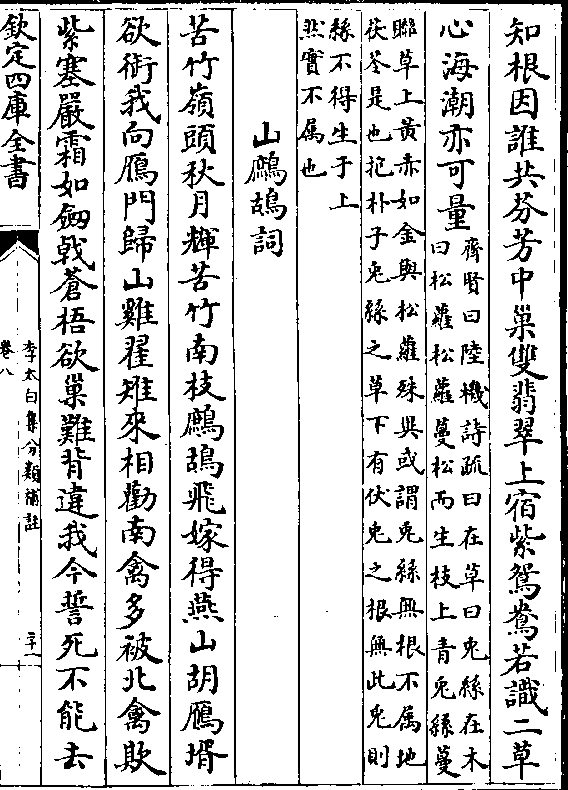 知根因誰共芬芳中巢雙翡翠上宿紫鴛鴦若識二草
心海潮亦可量
齊賢曰陸機詩疏曰在草曰兎絲在木
曰松蘿松蘿蔓松而生枝上青兎絲蔓
聮草上黄赤如金與松蘿殊異或謂兎絲無根不属地
茯苓是也抱朴子兎絲之草下有伏兎之根無此兎則
絲不得生于上
然實不属也
山鷓鴣詞
苦竹嶺頭秋月輝苦竹南枝鷓鴣飛嫁得燕山胡鴈壻
欲銜我向鴈門歸山雞翟雉來相勸南禽多被北禽欺
紫塞嚴霜如劒戟蒼梧欲巢難背違我今誓死不能去
欽定四庫全書
李太白集分類補註
卷八
二十一